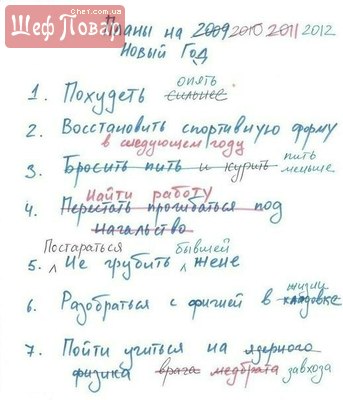 Chef.com.ua
Шеф Повар
Планы на 2009 2010 2011 2012
Новый Год
опять
1. Похудеть сильнее
2. Восстановить спортивную форму
в следующем году
3. Бросить пить и курить пить меньше
Найти работу
4. Перестать прогибаться под
начальство
Постараться бывшей
5. Не грубить жене
жизни
6. Разобраться с фигней в кладовке
7. Пойти учиться на ядерного
физика врача медбрата завхоза